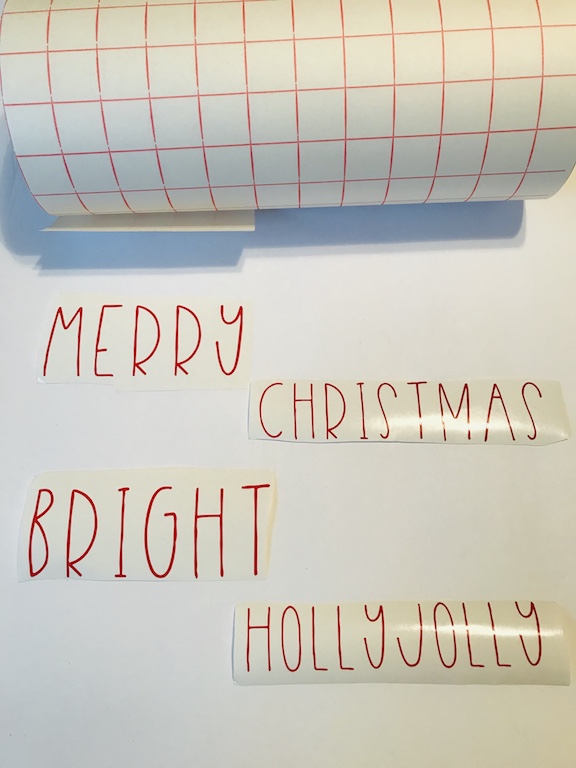 MERRY
CHRISTMAS
BRIGHT
HOLLY JOLLY